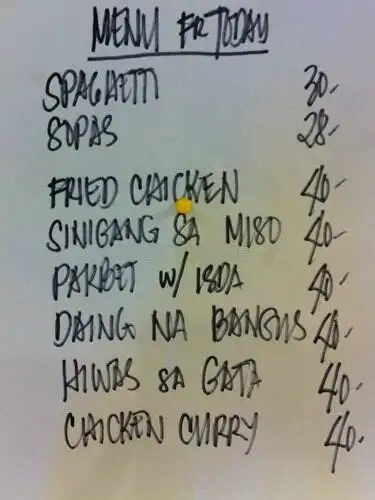 MENU FR TODAY
SPAGHETTI 30-
SOPAS 28-
FRIED CHICKEN 40-
SINIGANG SA MISO 40-
PAKBET W/ ISDA 40-
DAING NA BANGUS 40-
HIWAS SA GATA 40-
CHICKEN CURRY 40-